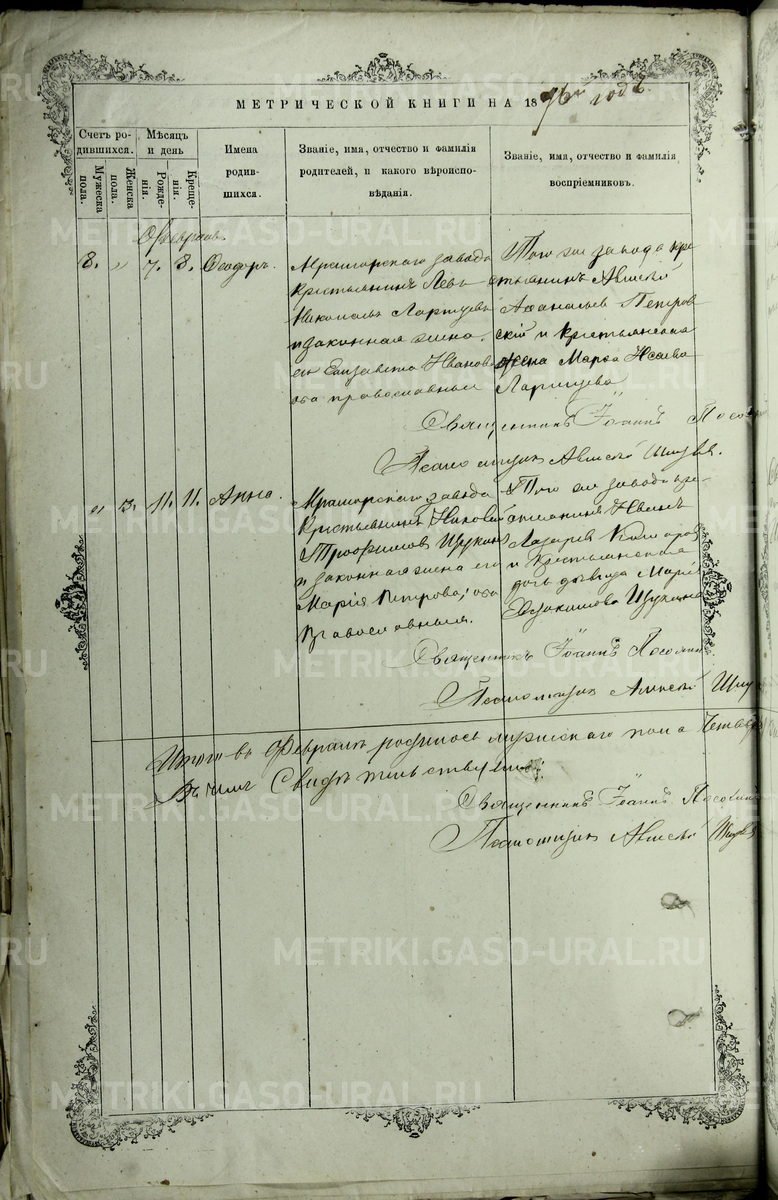 МЕТРИЧЕСКОЙ КНИГИ НА 1876й годъ.
Счетъ ро-
дившихся.
Мужеска
пола.
Женска
пола.
Мѣсяцъ
и день
Рожде-
нія.
Креще-
нія.
Имена
родив-
шихся.
Званіе, имя, отчество и фамилія
родителей, и какого вѣроиспо-
вѣданія.
Званіе, имя, отчество и фамилія
воспріемниковъ.
Февраль
8. " 7. 8. Ѳеодоръ.
Мраморскаго завода
Крестьянинъ Левъ
Николаевъ
и законная жена
его Елизавета Иванова
оба православныи
Того же завода кре
стьянинъ Алексѣй
Аѳанасьевъ Петров
скій и Крестьянская
жена Марѳа Исаева
Священникъ Іоаннъ
Псаломщик Алексѣй
" 3. 11. 11. Анна.
Мраморскаго завода
Крестьянинъ
Трофимов Щукин
и законная жена его
Марія Петрова; оба
Православныя.
Того же завода кре-
стьянинъ Иванъ
Лазарев
и Крестьянская
дочь дѣвица Марія
Евдокимова Щукина
Священникъ Іоаннъ
Псаломщик Алексѣй
Итого въ Февралѣ родилось мужскаго пола
въ чемъ Свидѣтельствуемъ:
Священникъ Іоаннъ
Псаломщик Алексѣй
METRIKI.GASO-URAL.RU